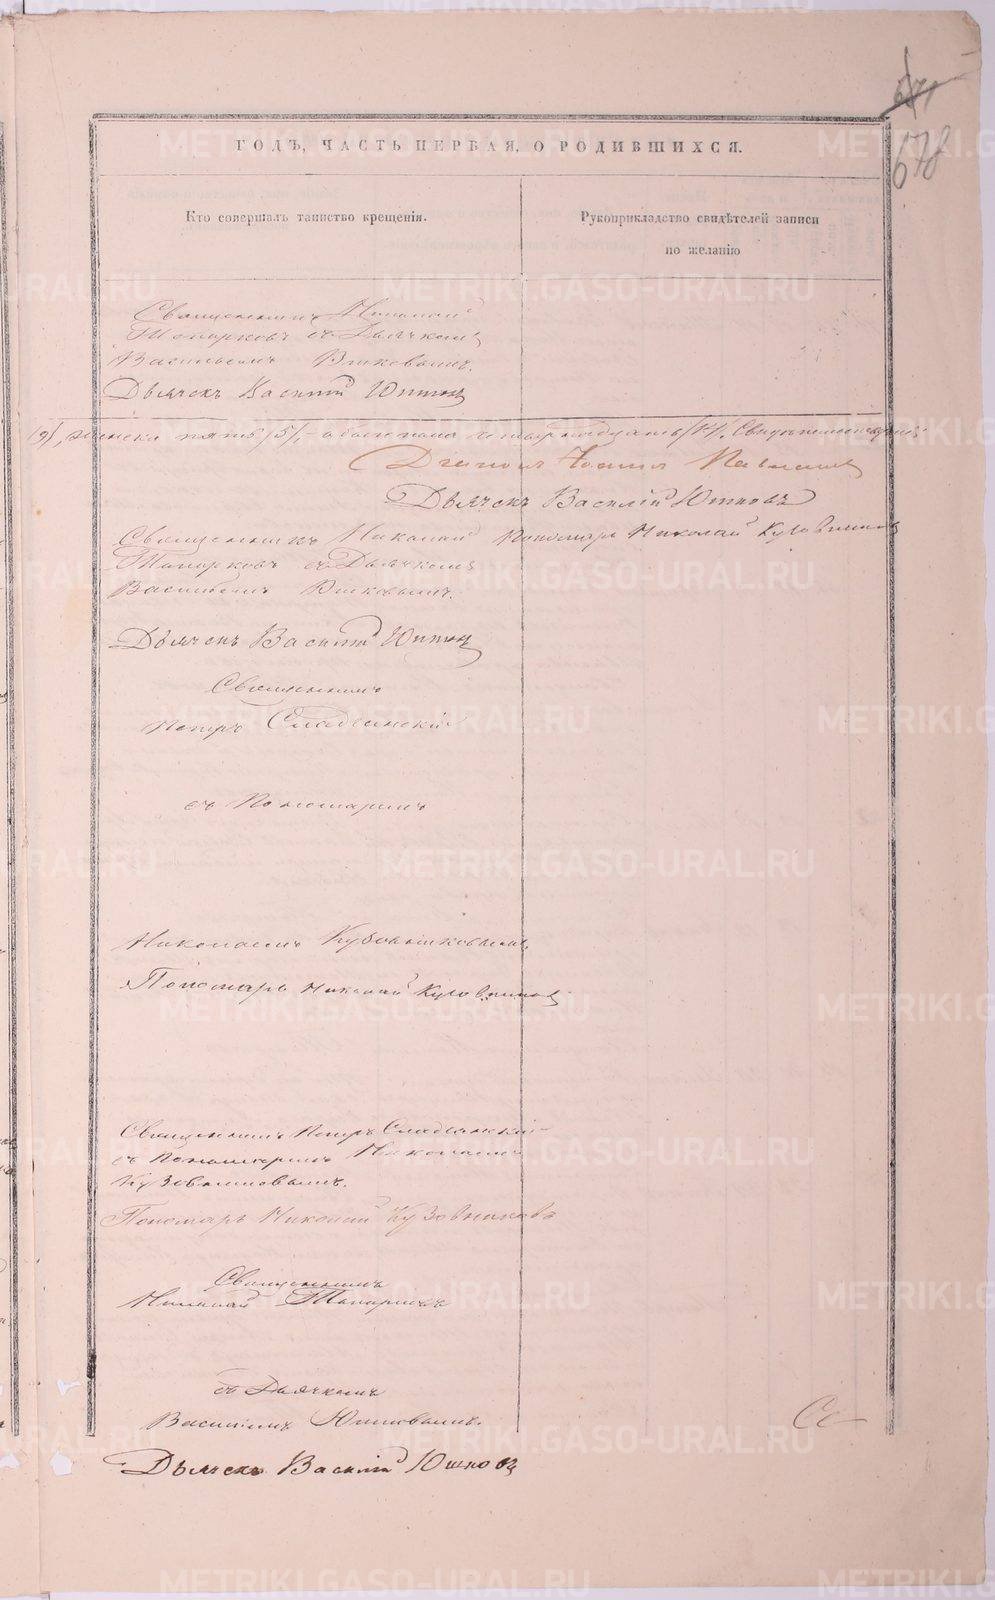 671
678
ГОДЪ, ЧАСТЬ ПЕРВАЯ, О РОДИВШИХСЯ.
Кто совершалъ таинство крещенія.
Рукоприкладство свидѣтелей записи
по желанію
Священникъ Николай
Топорковъ съ Дьячкомъ
Василіемъ
Дьячекъ Василій Юшковъ
пять /5/, - обоего пола четырнадцать /14/.
Діаконъ Іоаннъ
Дьячекъ Василій Юшковъ
Пономарь Николай Кузовниковъ
Священникъ Николай
Топорковъ съ Дьячкомъ
Василіемъ Юшковымъ.
Дьячекъ Василій Юшковъ
Священникъ
Петръ Сладчанскій
съ Пономаремъ
Николаемъ Кузовниковымъ
Пономарь Николай Кузовниковъ
Священникъ Петръ Сладчанскій
съ Пономаремъ Николаемъ
Кузовниковымъ.
Пономарь Николай Кузовниковъ
Священникъ
Николай Топорковъ
съ Дьячкомъ
Василіемъ Юшковымъ.
Дьячекъ Василій Юшковъ
METRIKI.GASO-URAL.RU